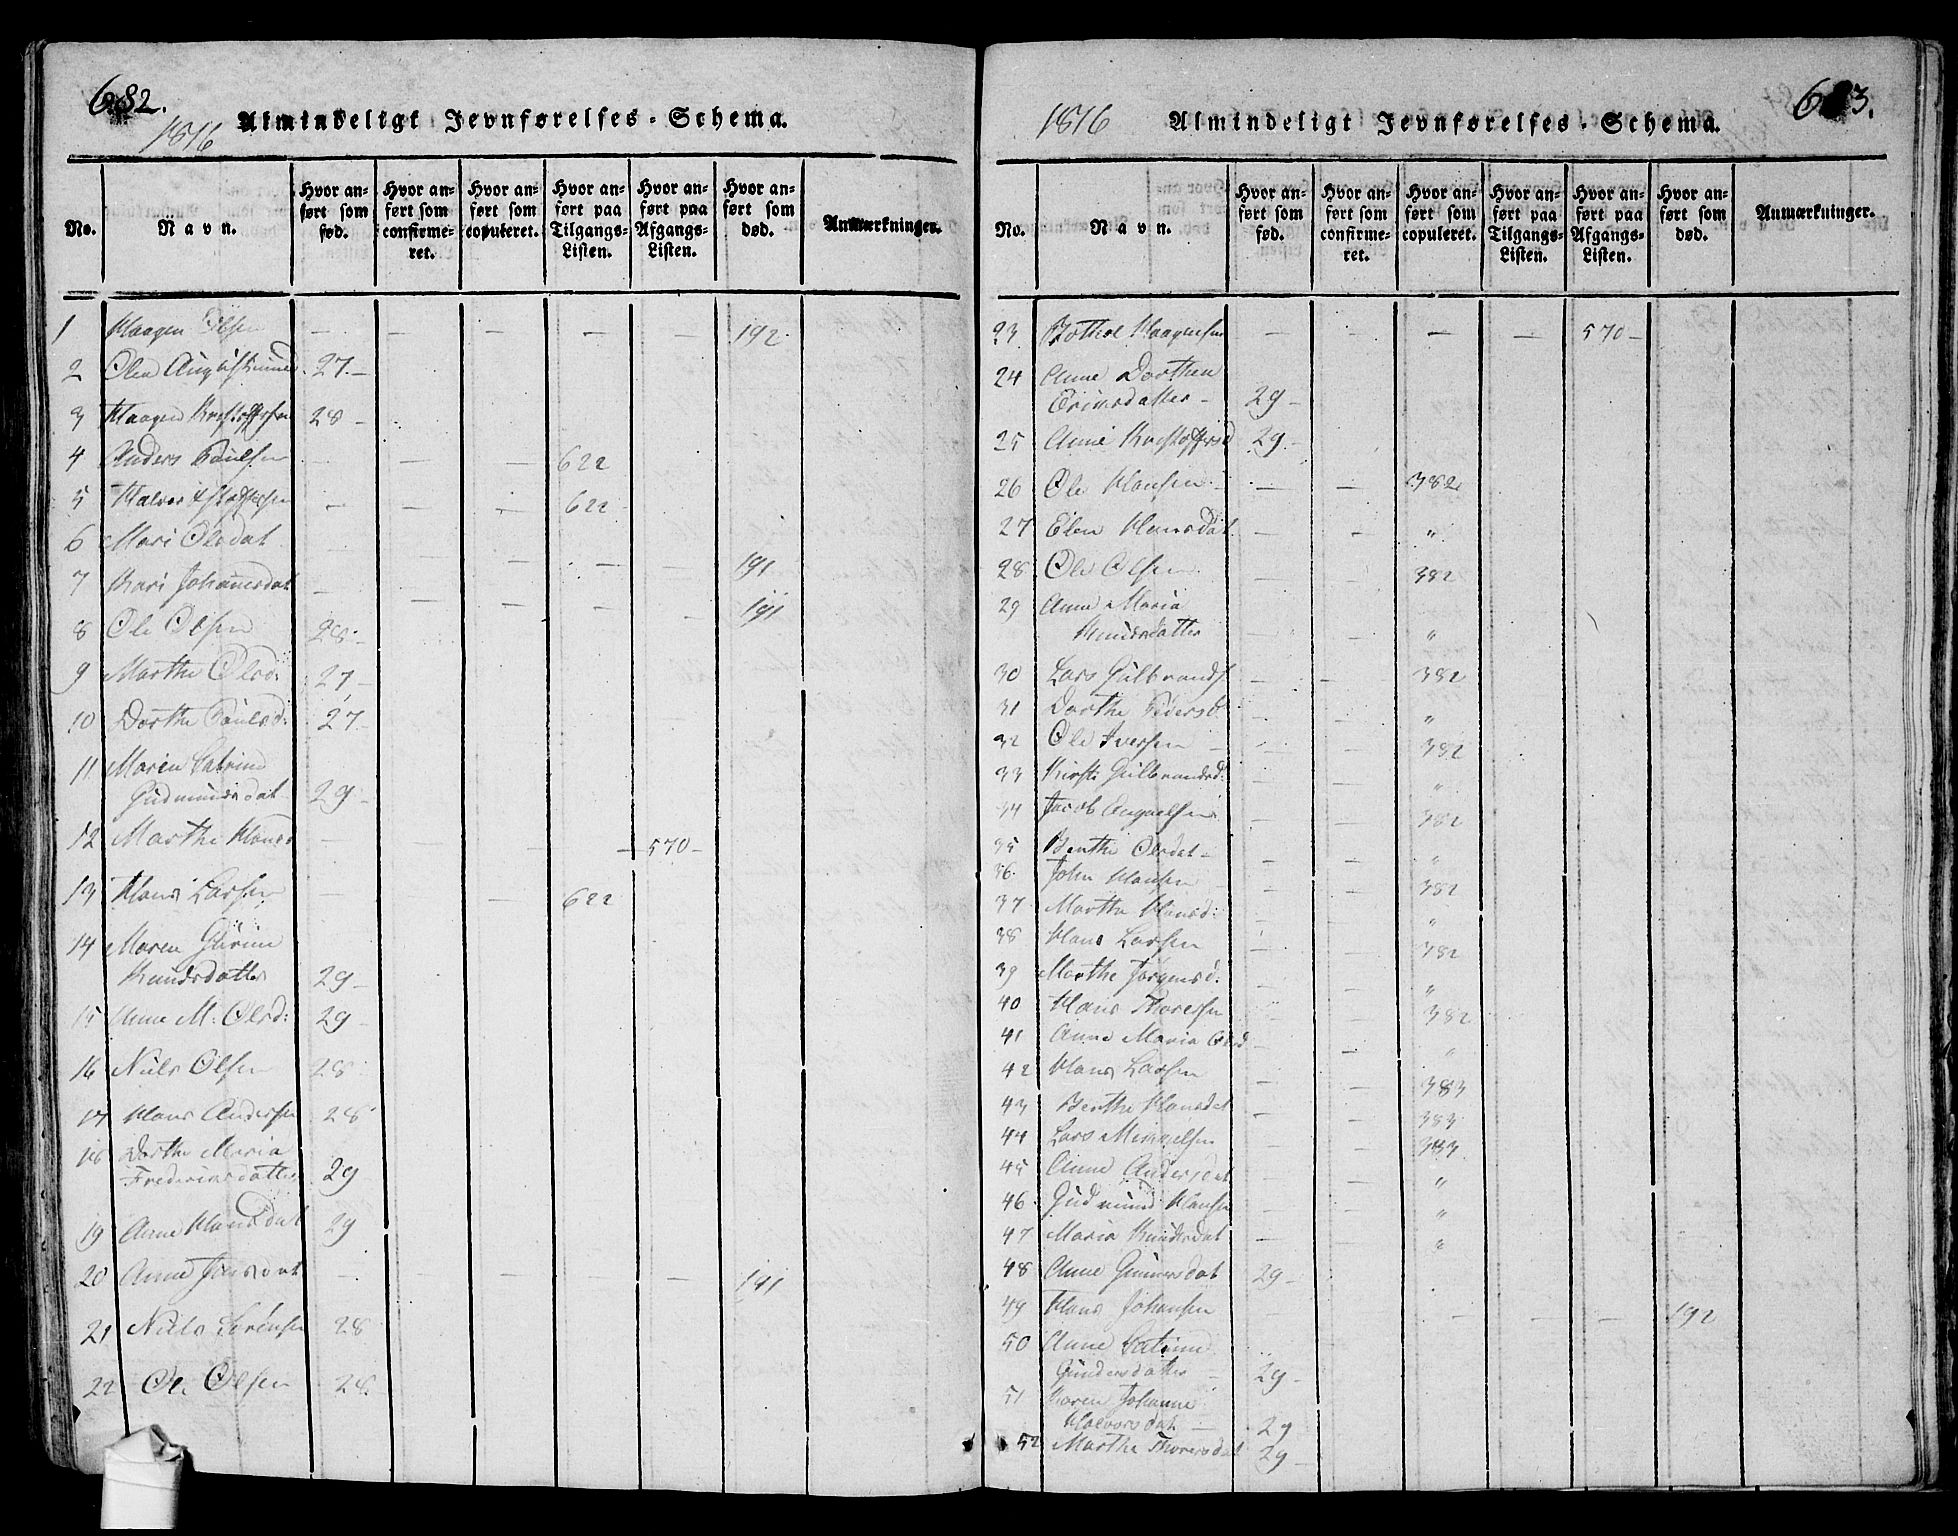 682.
1816 Almindeligt Jevnførelses-Schema.
No. Navn. Hvor anført som fød. Hvor anført som confirmeret. Hvor anført som copuleret. Hvor anført paa Tilgangs-Listen. Hvor anført paa Afgangs-Listen. Hvor anført som død. Anmærkninger.
1 Haagen Olsen — — — — — 192.
2 Olea Augustinine 27.—
3 Haagen Kristoffersen 28—
4 Anders Poulsen — — — 622
5 Halvor Kristoffersen — — — 622
6 Mari Olsdat — — — — 191
7 Kari Johannesdat — — — — — 191
8 Ole Olsen 28.
9 Marthe Olsd: 27,—
10 Dorthe Poulsd: 27—
11 Maren Catrine
Gudmundsdat 29—
12 Marthe Hansd — — — — 570—
13 Hans Larsen — — — 622
14 Maren Gurine
Knudsdatter 29—
15 Anne M: Olsd: 29—
16 Niels Olsen 28.
17 Hans Andersen 28
18 Dorthe Maria
Frederiksdatter 29
19 Anne Hansdat 29
20 Anne Jensdat — — — — — 191
21 Niels Sørensen 28
22 Ole Olsen 28.
683.
1816 Almindeligt Jevnførelses-Schema.
No. Navn. Hvor anført som fød. Hvor anført som confirmeret. Hvor anført som copuleret. Hvor anført paa Tilgangs-Listen. Hvor anført paa Afgangs-Listen. Hvor anført som død. Anmærkninger.
23 Bothol Haagensen — — — — 570—
24 Anne Dorthea
Eriksdatter— 29—
25 Anne Kristoffersd 29—
26 Ole Hansen — — 382
27 Elen Hansdat. — — "
28 Ole Olsen — — 382
29 Anne Maria
Knudsdatter — — "
30 Lars Gulbrands. — — 382
31 Dorthe Pedersd. — — "
32 Ole Iversen — — 382
33 Kirsti Gulbrandsd: — — "
34 Jacob Engvelsen — — 382
35 Benthe Olsdat— — — "
36. John Hansen — — 382
37 Marthe Hansd: — — "
38 Hans Larsen — — 382
39 Marthe Jørgensd: — — "
40 Hans Thoresen — — 382
41 Anne Maria Olsd — — "
42 Hans Larsen — — 383
43 Benthe Hansdat — — 383
44 Lars Mikkelsen — — 383
45 Anne Andersdat — — "
46 Gudmund Hansen — — "
47 Maria Knudsdat — — "
48 Anne Gunnersdat 29—
49 Hans Johansen — — — 192
50 Anne Catrine
Gundersdatter — 29—
51 Karen Johanne
Halvorsdat — 29
52 Marthe Thoresdat 29—